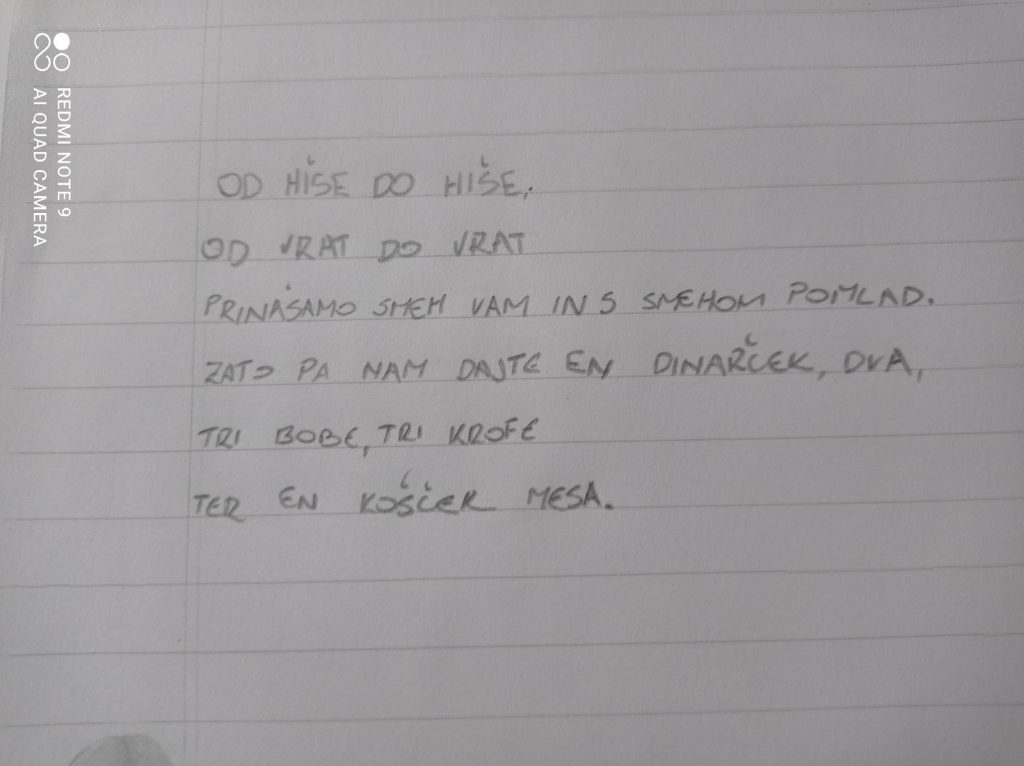 OD HIŠE DO HIŠE,
OD VRAT DO VRAT
PRINAŠAMO SMEH VAM IN S SMEHOM POMLAD.
ZATO PA NAM DAJTE EN DINARČEK, DVA,
TRI BOBE, TRI KROFE
TER EN KOŠČEK MESA.
REDMI NOTE 9
AI QUAD CAMERA